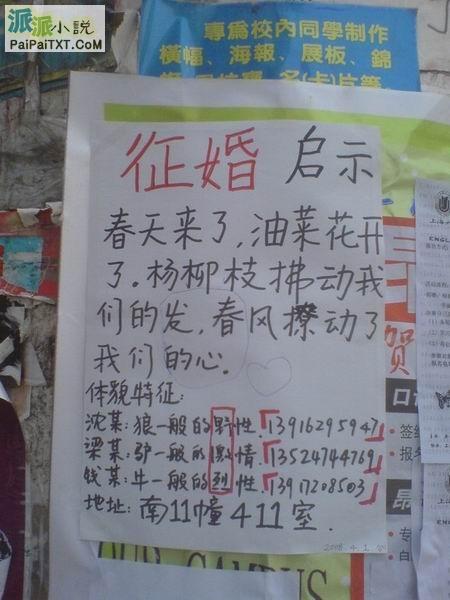 派派小说
PaiPaiTXT.Com
專爲校內同學制作
橫幅、海報、展板、錦
名(卡)片等
征婚 启示
春天来了,油菜花开
了.杨柳枝拂动我
们的发,春风撩动了
我们的心.
体貌特征:
沈某:狼一般的野性.「13916295947」
梁某:驴一般的激情「13524744769」
钱某:牛一般的烈性「13917208503」
地址:南11幢411室.
2008.4.1
贺
口
签
报
昂
专
白
上海
ENGL
OUR CAMPUS